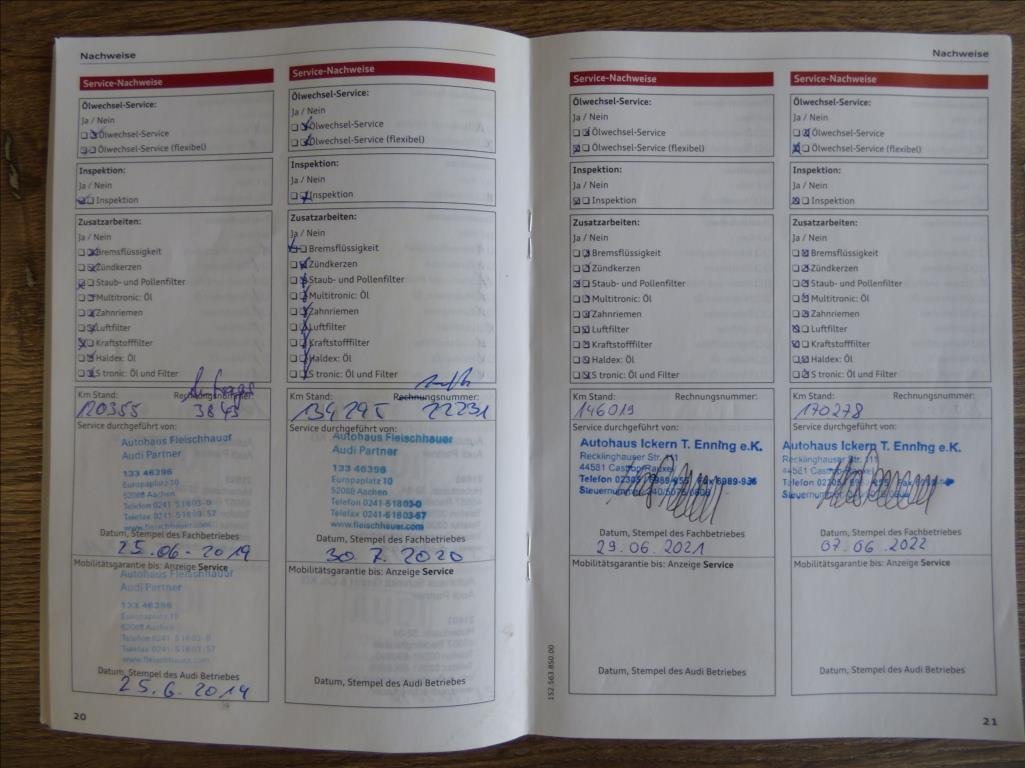 Nachweise
Service-Nachweise
Ölwechsel-Service:
Ja / Nein
Ölwechsel-Service
Ölwechsel-Service (flexibel)
Inspektion:
Ja / Nein
Inspektion
Zusatzarbeiten:
Ja / Nein
Bremsflüssigkeit
Zündkerzen
Staub- und Pollenfilter
Multitronic: Öl
Zahnriemen
Luftfilter
Kraftstofffilter
Haldex: Öl
S tronic: Öl und Filter
Km Stand: Rechnungsnummer:
120355 3843
Service durchgeführt von:
Autohaus Fleischhauer
Audi Partner
133 46396
Europaplatz 10
52068 Aachen
Telefon 0241-51803-0
Telefax 0241-51803-57
www.fleischhauer.com
Datum, Stempel des Fachbetriebes
25.06.2019
Mobilitätsgarantie bis: Anzeige Service
Autohaus Fleischhauer
Audi Partner
133 46396
Europaplatz 10
52068 Aachen
Telefon 0241-51803-0
Telefax 0241-51803-57
www.fleischhauer.com
Datum, Stempel des Audi Betriebes
25.6.2019
20
Service-Nachweise
Ölwechsel-Service:
Ja / Nein
Ölwechsel-Service
Ölwechsel-Service (flexibel)
Inspektion:
Ja / Nein
Inspektion
Zusatzarbeiten:
Ja / Nein
Bremsflüssigkeit
Zündkerzen
Staub- und Pollenfilter
Multitronic: Öl
Zahnriemen
Luftfilter
Kraftstofffilter
Haldex: Öl
S tronic: Öl und Filter
Km Stand: Rechnungsnummer:
134295 22231
Service durchgeführt von:
Autohaus Fleischhauer
Audi Partner
133 46396
Europaplatz 10
52068 Aachen
Telefon 0241-51803-0
Telefax 0241-51803-57
www.fleischhauer.com
Datum, Stempel des Fachbetriebes
30.7.2020
Mobilitätsgarantie bis: Anzeige Service
Datum, Stempel des Audi Betriebes
Nachweise
Service-Nachweise
Ölwechsel-Service:
Ja / Nein
Ölwechsel-Service
Ölwechsel-Service (flexibel)
Inspektion:
Ja / Nein
Inspektion
Zusatzarbeiten:
Ja / Nein
Bremsflüssigkeit
Zündkerzen
Staub- und Pollenfilter
Multitronic: Öl
Zahnriemen
Luftfilter
Kraftstofffilter
Haldex: Öl
S tronic: Öl und Filter
Km Stand: Rechnungsnummer:
146019
Service durchgeführt von:
Autohaus Ickern T. Enning e.K.
Recklinghauser Str. 111
44581 Castrop-Rauxel
Telefon 02305 Fax
Steuernummer
Datum, Stempel des Fachbetriebes
29.06.2021
Mobilitätsgarantie bis: Anzeige Service
Datum, Stempel des Audi Betriebes
152.563.850.00
Service-Nachweise
Ölwechsel-Service:
Ja / Nein
Ölwechsel-Service
Ölwechsel-Service (flexibel)
Inspektion:
Ja / Nein
Inspektion
Zusatzarbeiten:
Ja / Nein
Bremsflüssigkeit
Zündkerzen
Staub- und Pollenfilter
Multitronic: Öl
Zahnriemen
Luftfilter
Kraftstofffilter
Haldex: Öl
S tronic: Öl und Filter
Km Stand: Rechnungsnummer:
170278
Service durchgeführt von:
Autohaus Ickern T. Enning e.K.
Recklinghauser Str. 111
44581
Telefon 02305
Steuernummer
Datum, Stempel des Fachbetriebes
07.06.2022
Mobilitätsgarantie bis: Anzeige Service
Datum, Stempel des Audi Betriebes
21